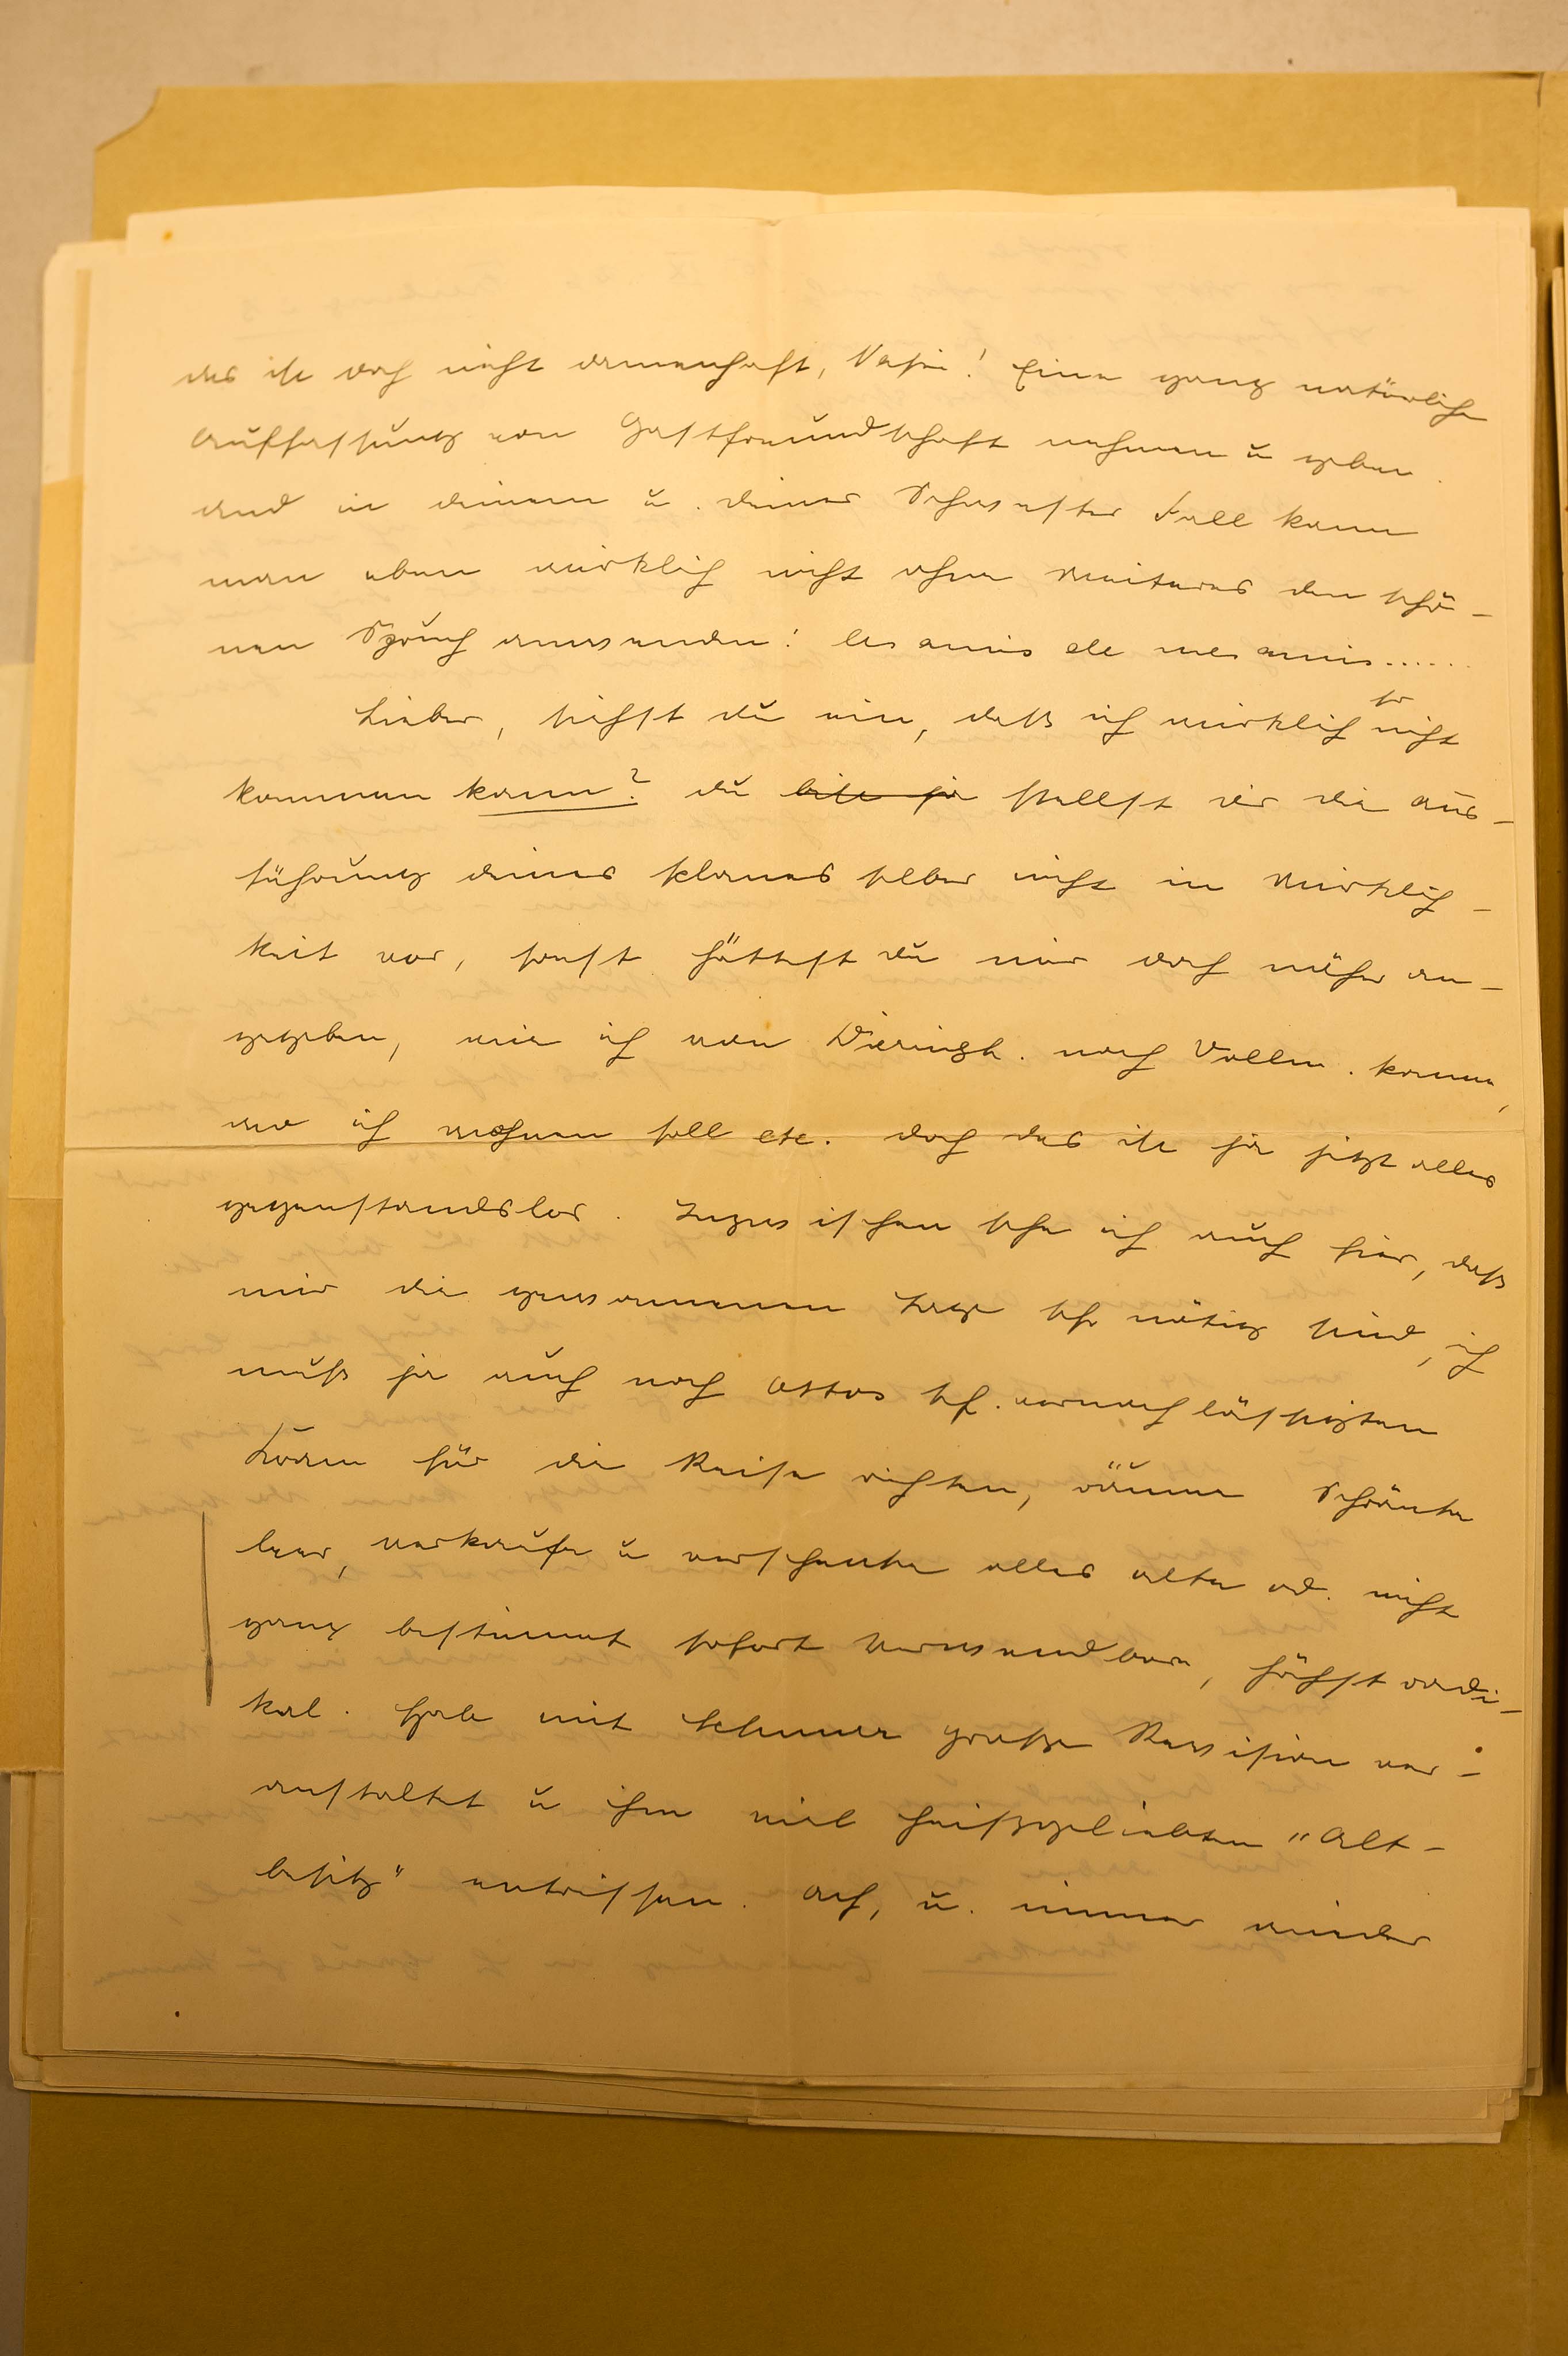 das ist doch nicht damenhaft, Nasie! Eine ganz natürliche
Auffassung von Gastfreundschaft nehmen u geben.
und in deinem u. deiner Schwester Fall kann
man eben wirklich nicht ohne Weiteres den schö-
nen Spruch anwenden: les amis de mes amis......
Lieber, siehst du ein, daß ich wirklich so nicht
kommen kann? du bist ja stellst dir die Aus-
führung deines Planes selber nicht in Wirklich-
keit vor, sonst hättest du mir doch näher an-
gegeben, wie ich von Dieringh. nach Vollm. komme,
wo ich wohnen soll etc. doch das ist ja jetzt alles
gegenstandslos. Inzwischen sehe ich auch hier, daß
mir die gewonnenen Tage sehr nötig sind, ich
muß ja auch noch Ottos sehr vernachlässigten
Kram für die Reise richten, räume Schränke
leer, verkaufe u verschenke alles alte od. nicht
ganz bestimmt sofort Verwendbare, höchst radi-
kal. Habe mit Schnurr große Revision ver-
anstaltet u ihm viel heißgeliebten "Alt-
besitz" entrissen. Ach, u. immer wieder